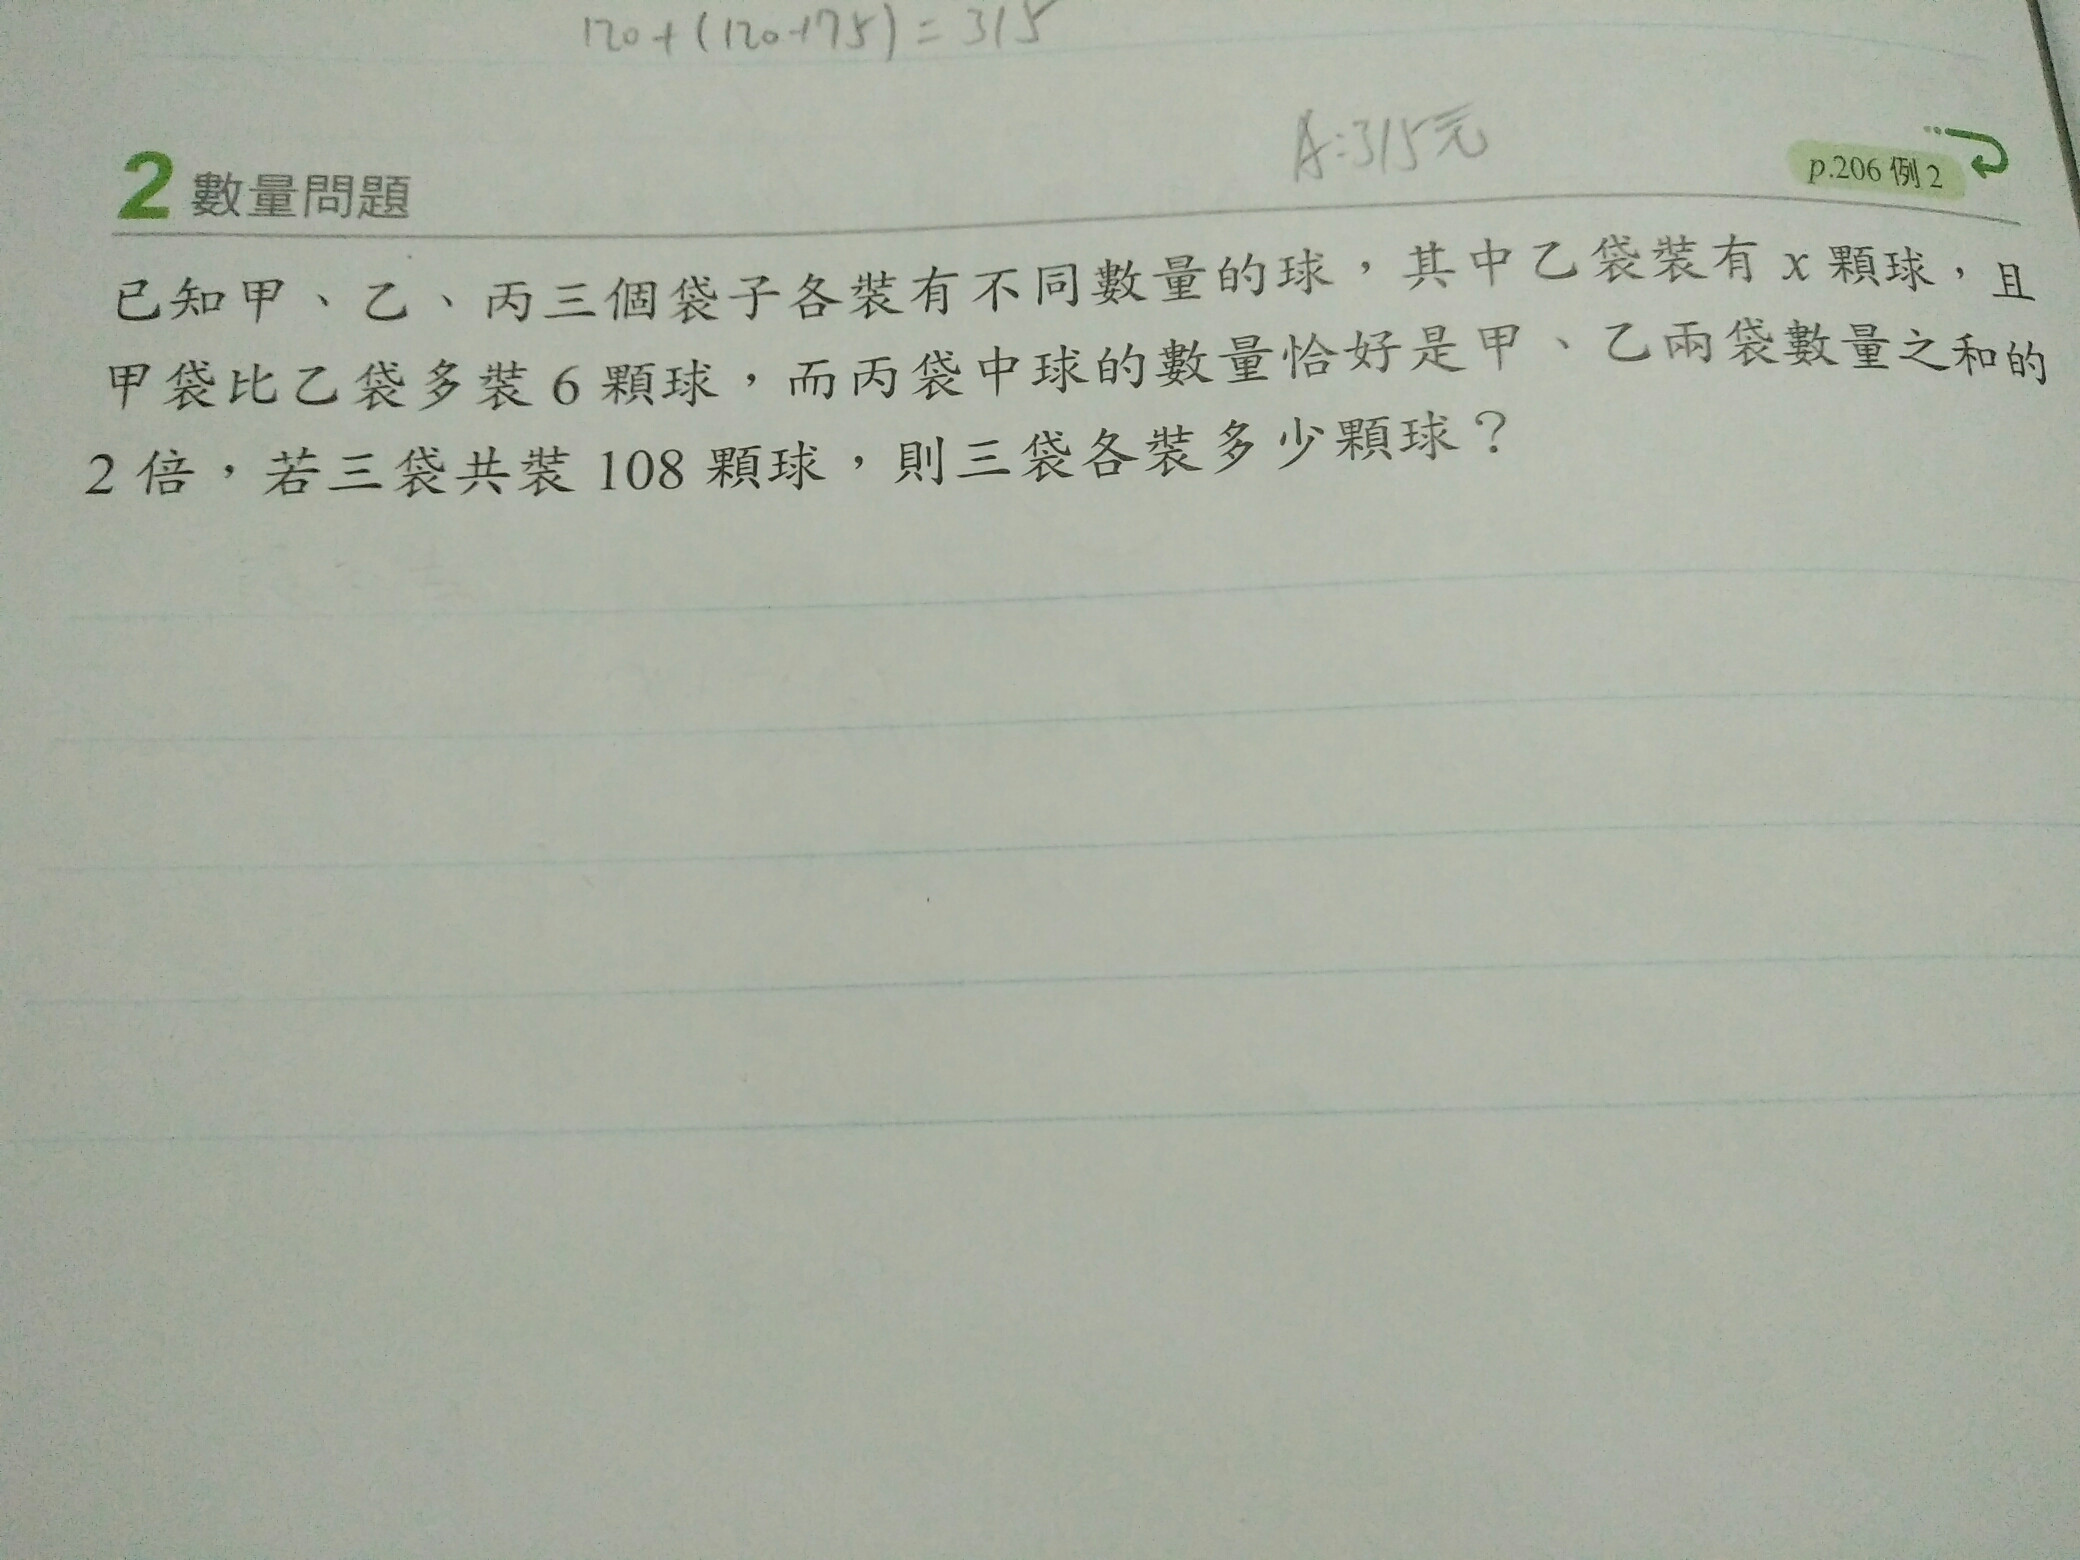 120+(120+75)=315
A:315元
2 數量問題
p.206 例2
已知甲、乙、丙三個袋子各裝有不同數量的球,其中乙袋裝有 x 顆球,且
甲袋比乙袋多裝 6 顆球,而丙袋中球的數量恰好是甲、乙兩袋數量之和的
2 倍,若三袋共裝 108 顆球,則三袋各裝多少顆球?